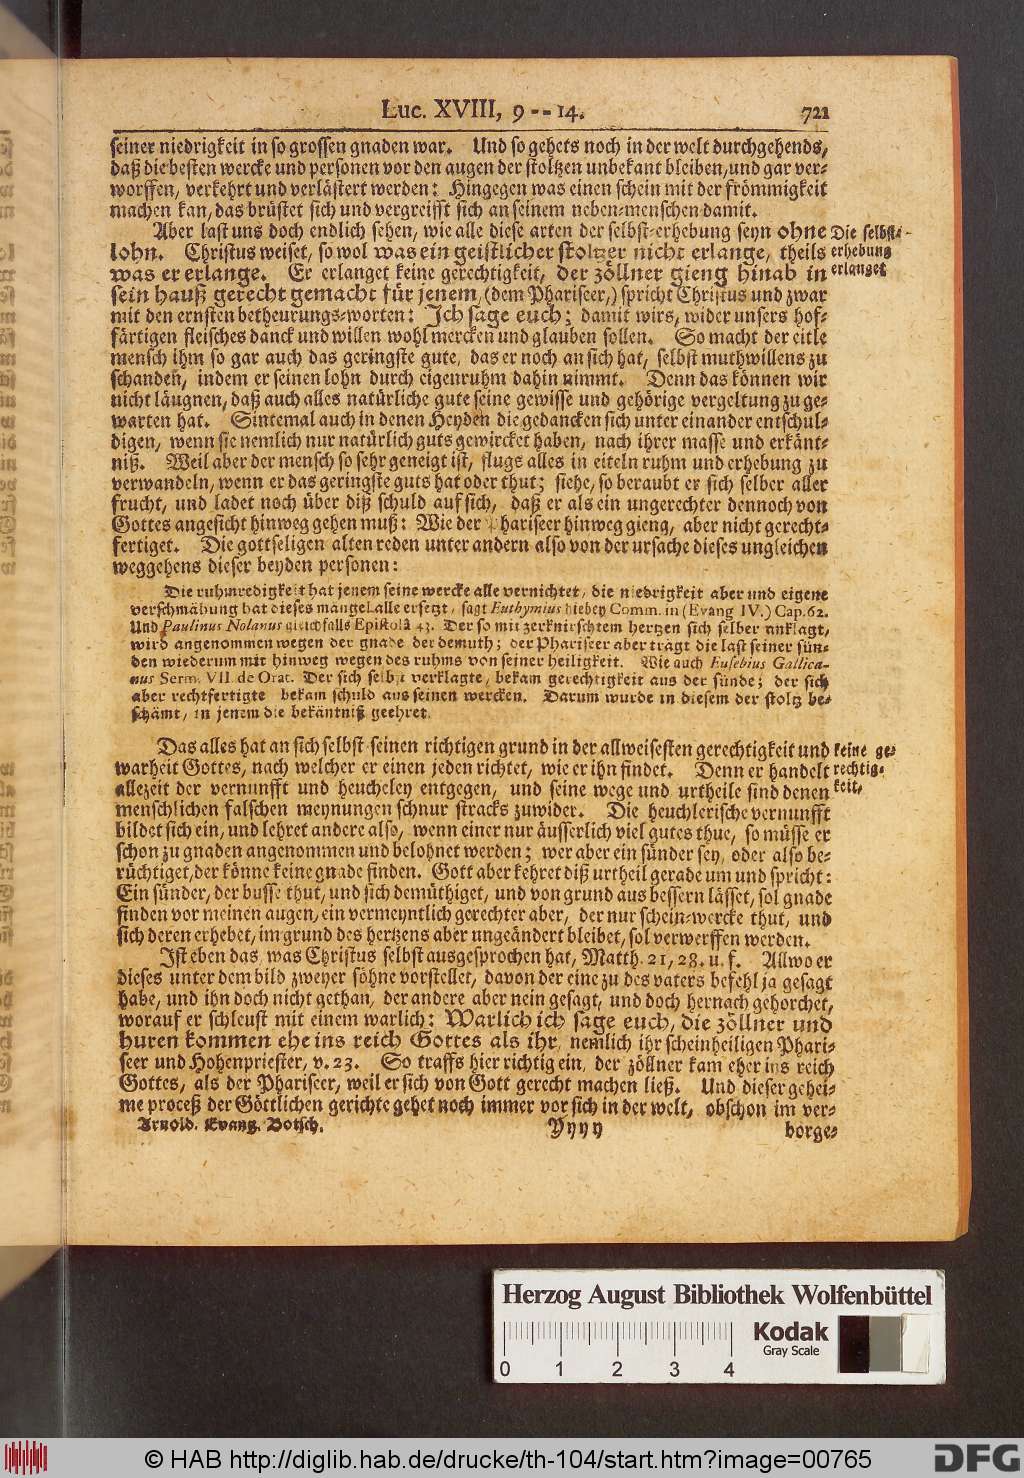 Luc. XVIII, 9--14. 721
seiner niedrigkeit in so grossen gnaden war. Und so gehets noch in der welt durchgehends,
daß die besten wercke und personen vor den augen der stoltzen unbekant bleiben, und gar ver-
worffen, verkehrt und verlästert werden: Hingegen was einen schein mit der frömmigkeit
machen kan, das brüstet sich und vergreifft sich an seinem neben-menschen damit.
Aber last uns doch endlich sehen, wie alle diese arten der selbst-erhebung seyn ohne
Die selbst-
lohn. Christus weiset, so wol was ein geistlicher stoltzer nicht erlange, theils
erhebung
was er erlange. Er erlanget keine gerechtigkeit, der zöllner gieng hinab in
erlanget
sein hauß gerecht gemacht für jenem, (dem Phariseer,) spricht Christus und zwar
mit den ernsten betheurungs-worten: Ich sage euch; damit wirs, wider unsers hof-
färtigen fleisches danck und willen wohl mercken und glauben sollen. So macht der eitle
mensch ihm so gar auch das geringste gute, das er noch an sich hat, selbst muthwillens zu
schanden, indem er seinen lohn durch eigenruhm dahin nimmt. Denn das können wir
nicht läugnen, daß auch alles natürliche gute seine gewisse und gehörige vergeltung zu ge-
warten hat. Sintemal auch in denen Heyden die gedancken sich unter einander entschul-
digen, wenn sie nemlich nur natürlich guts gewircket haben, nach ihrer masse und erkänt-
niß. Weil aber der mensch so sehr geneigt ist, flugs alles in eiteln ruhm und erhebung zu
verwandeln, wenn er das geringste guts hat oder thut; siehe, so beraubt er sich selber aller
frucht, und ladet noch über diß schuld auf sich, daß er als ein ungerechter dennoch von
Gottes angesicht hinweg gehen muß: Wie der Phariseer hinweg gieng, aber nicht gerecht-
fertiget. Die gottseligen alten reden unter andern also von der ursache dieses ungleichen
weggehens dieser beyden personen:
Die ruhmredigkeit hat jenem seine wercke alle vernichtet, die niedrigkeit aber und eigene
verschmähung hat dieses mängel alle ersetzt, sagt Euthymius hiebey Comm. in (Evang IV.) Cap. 62.
Und Paulinus Nolanus gleichfalls Epistolâ 43. Der so mit zerknirschtem hertzen sich selber anklagt,
wird angenommen wegen der gnade der demuth; der Phariseer aber trägt die last seiner sün-
den wiederum mit hinweg wegen des ruhms von seiner heiligkeit. Wie auch Eusebius Gallica-
nus Serm. VII. de Orat. Der sich selbst verklagte, bekam gerechtigkeit aus der sünde; der sich
aber rechtfertigte bekam schuld aus seinen wercken. Darum wurde in diesem der stoltz be-
schämt, in jenem die bekäntniß geehret.
Das alles hat an sich selbst seinen richtigen grund in der allweisesten gerechtigkeit und
keine ge-
warheit Gottes, nach welcher er einen jeden richtet, wie er ihn findet. Denn er handelt
rechtig-
allezeit der vernunfft und heucheley entgegen, und seine wege und urtheile sind denen
keit,
menschlichen falschen meynungen schnur stracks zuwider. Die heuchlerische vernunfft
bildet sich ein, und lehret andere also, wenn einer nur äusserlich viel gutes thue, so müsse er
schon zu gnaden angenommen und belohnet werden; wer aber ein sünder sey, oder also be-
rüchtiget, der könne keine gnade finden. Gott aber kehret diß urtheil gerade um und spricht:
Ein sünder, der busse thut, und sich demüthiget, und von grund aus bessern lässet, sol gnade
finden vor meinen augen, ein vermeyntlich gerechter aber, der nur schein-wercke thut, und
sich deren erhebet, im grund des hertzens aber ungeändert bleibet, sol verwerffen werden.
Ist eben das, was Christus selbst ausgesprochen hat, Matth. 21, 28. u. f. Allwo er
dieses unter dem bild zweyer söhne vorstellet, davon der eine zu des vaters befehl ja gesagt
habe, und ihn doch nicht gethan, der andere aber nein gesagt, und doch hernach gehorchet,
worauf er schleust mit einem warlich: Warlich ich sage euch, die zöllner und
huren kommen ehe ins reich Gottes als ihr, nemlich ihr scheinheiligen Phari-
seer und Hohenpriester, v. 23. So traffs hier richtig ein, der zöllner kam eher ins reich
Gottes, als der Phariseer, weil er sich von Gott gerecht machen ließ. Und dieser gehei-
me proceß der Göttlichen gerichte gehet noch immer vor sich in der welt, obschon im ver-
Arnold. Evang. Botsch. Yyyy borge-
Herzog August Bibliothek Wolfenbüttel
Kodak
Gray Scale
0 1 2 3 4
© HAB http://diglib.hab.de/drucke/th-104/start.htm?image=00765
DFG